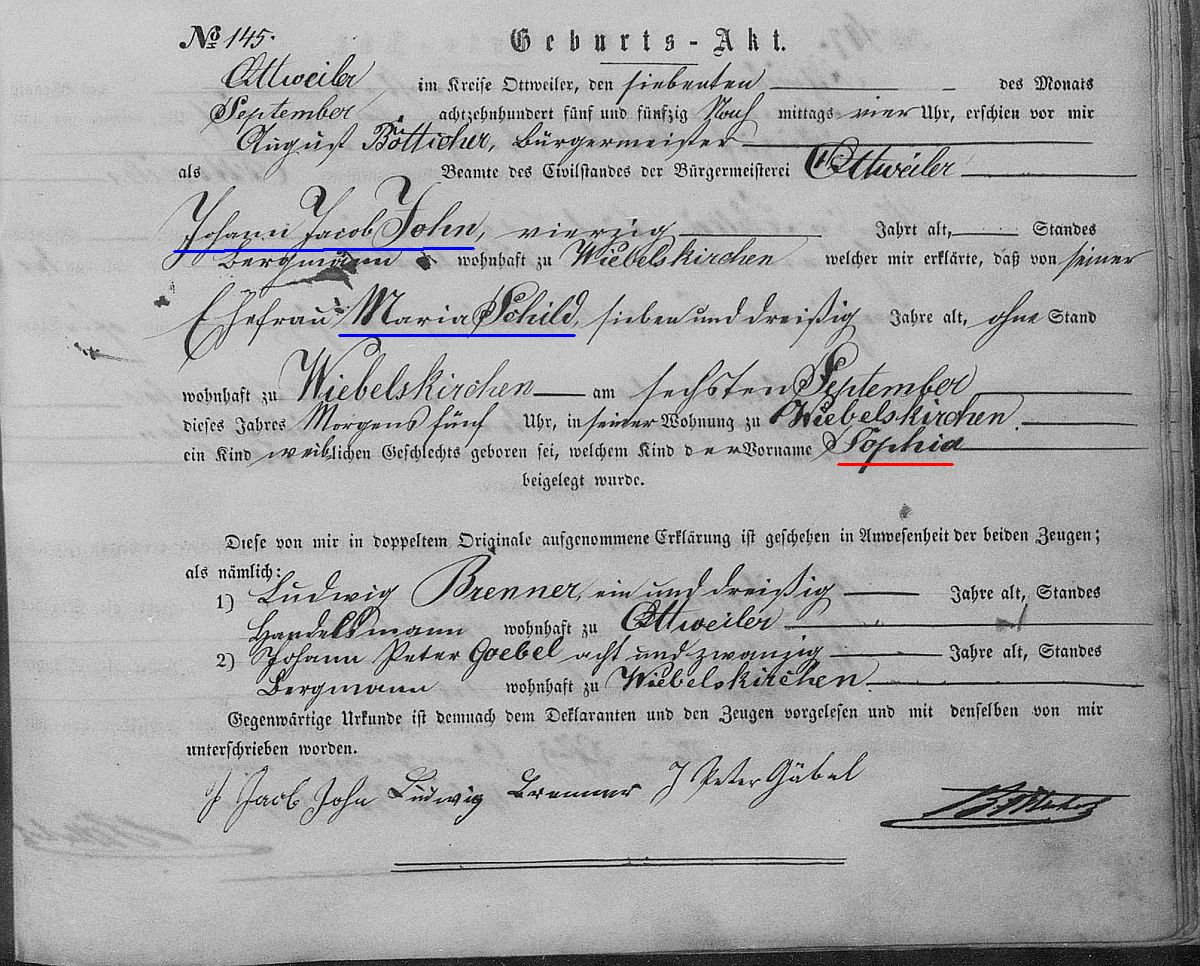 No 145. Geburts-Akt.
Ottweiler im Kreise Ottweiler, den siebenten des Monats
September achtzehnhundert fünf und fünfzig Nach mittags vier Uhr, erschien vor mir
August Bötticher, Bürgermeister
als Beamte des Civilstandes der Bürgermeisterei Ottweiler
Johann Jacob John, vierzig Jahrt alt, Standes
Bergmann wohnhaft zu Wiebelskirchen welcher mir erklärte, daß von seiner
Ehefrau Maria Schild, sieben und dreißig Jahre alt, ohne Stand
wohnhaft zu Wiebelskirchen am sechsten September
dieses Jahres Morgens fünf Uhr, in seiner Wohnung zu Wiebelskirchen.
ein Kind weiblichen Geschlechts geboren sei, welchem Kind der Vorname Sophia
beigelegt wurde.
Diese von mir in doppeltem Originale aufgenommene Erklärung ist geschehen in Anwesenheit der beiden Zeugen;
als nämlich:
1) Ludwig Brenner, ein und dreißig Jahre alt, Standes
Handelsmann wohnhaft zu Ottweiler
2) Johann Peter Goebel acht und zwanzig Jahre alt, Standes
Bergmann wohnhaft zu Wiebelskirchen.
Gegenwärtige Urkunde ist demnach dem Deklaranten und den Zeugen vorgelesen und mit denselben von mir
unterschrieben worden.
J Jacob John Ludwig Brenner J Peter Gäbel